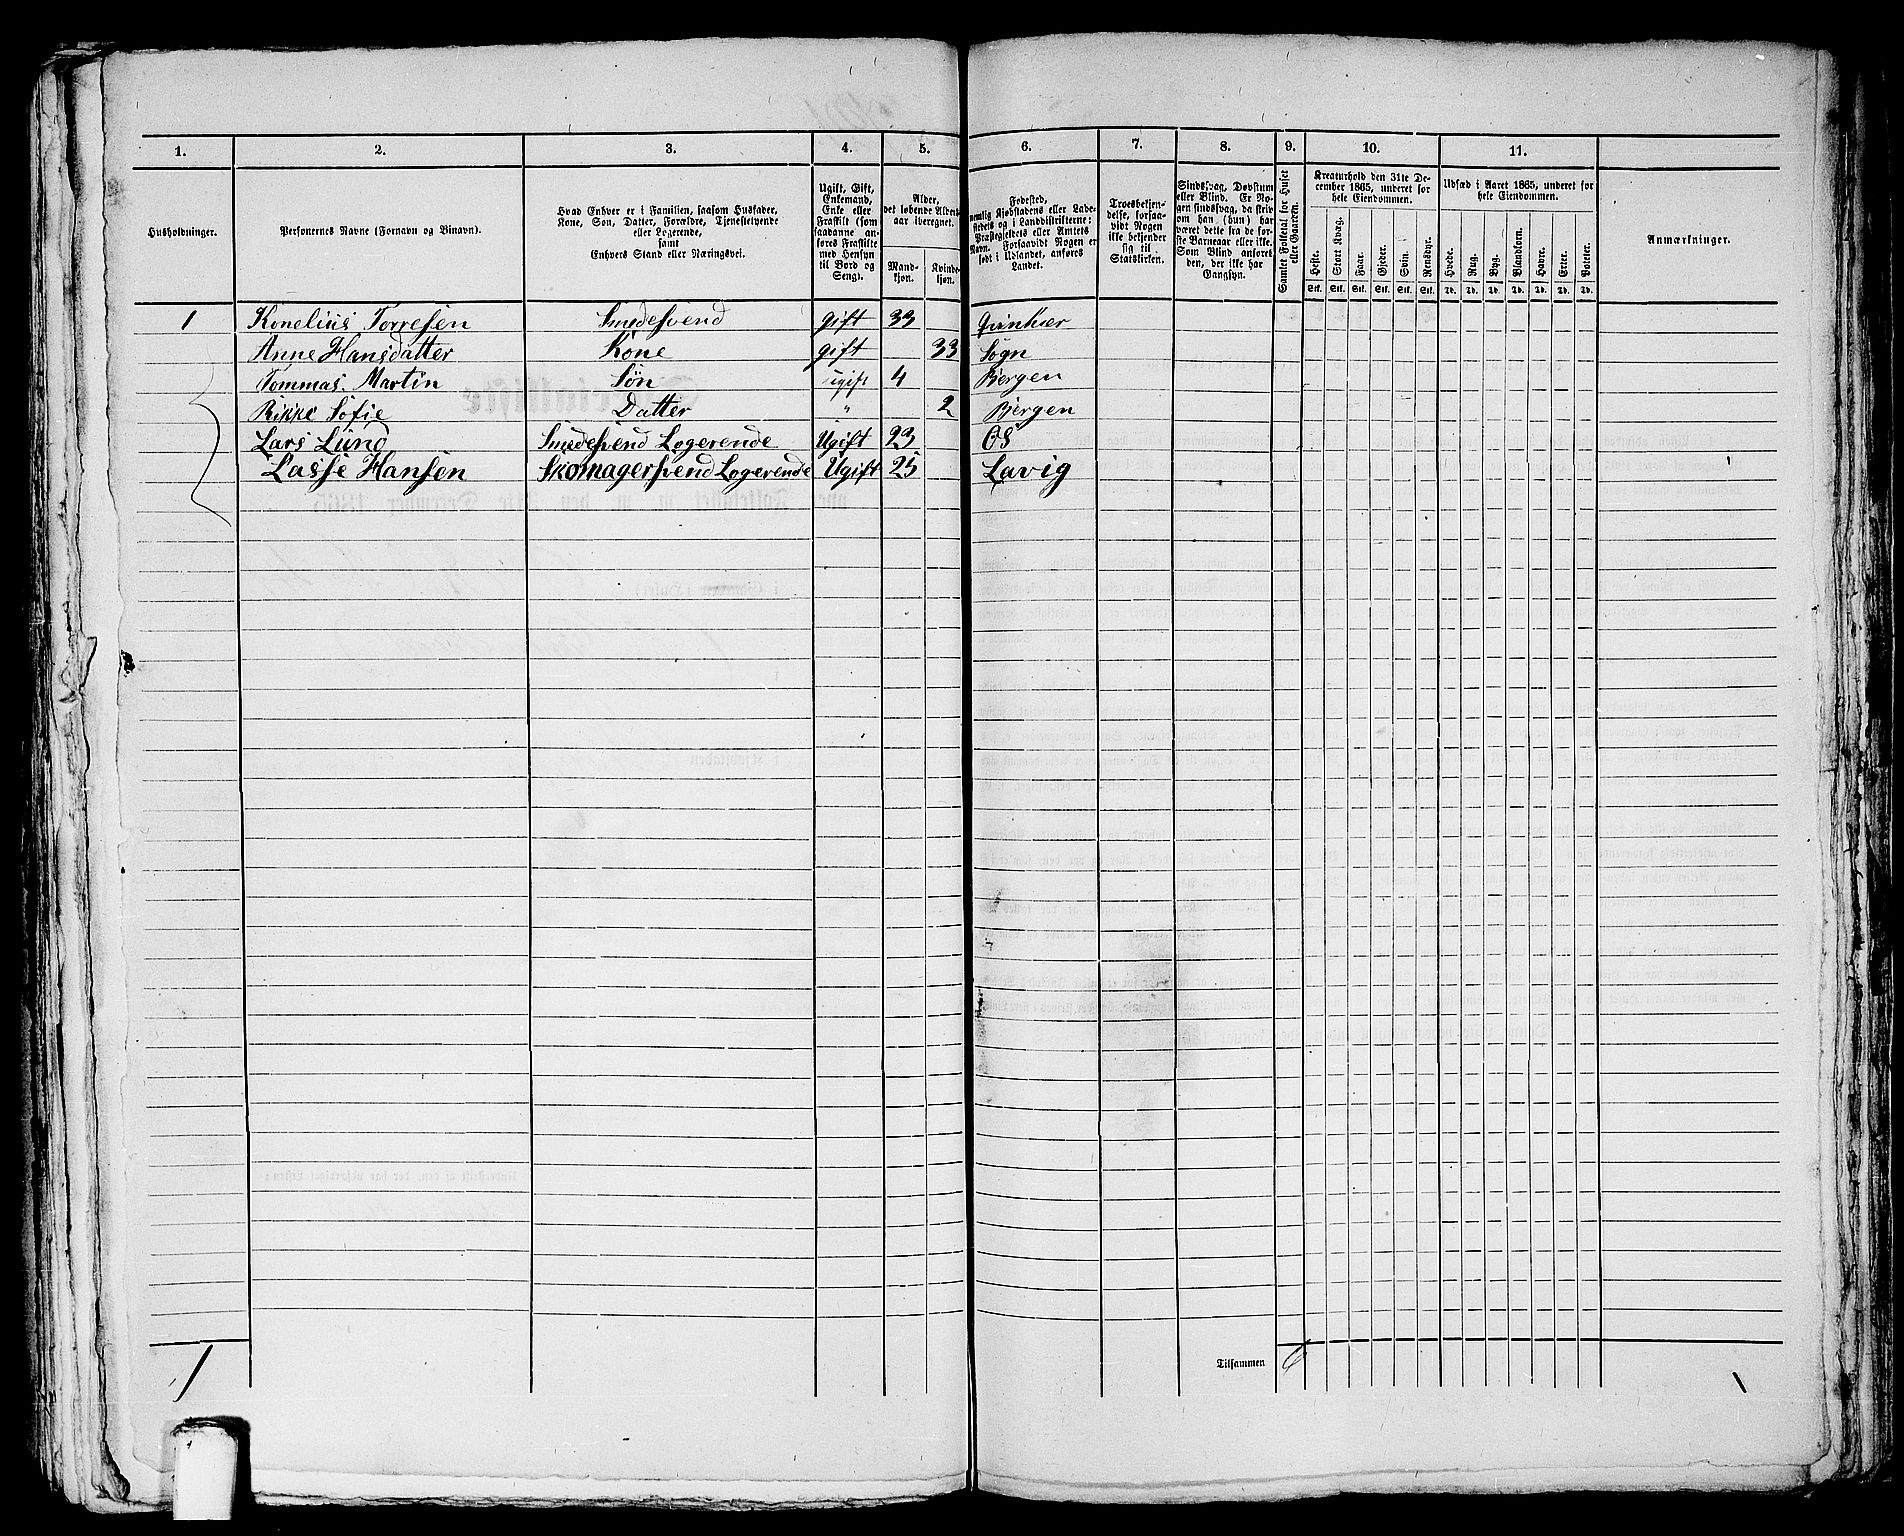 1. 2. 3. 4. 5. 6. 7. 8. 9. 10. 11.
Husholdninger.
Personernes Navne (Fornavn og Binavn).
Hvad Enhver er i Familien, saasom Husfader,
Kone, Søn, Datter, Forældre, Tjenestetyende
eller Logerende,
samt
Enhvers Stand eller Næringsvei.
Ugift, Gift,
Enkemand,
Enke eller
Fraskilt (som
saadanne an-
føres Fraskilte
med Hensyn
til Bord og
Seng).
Alder,
det løbende Alders-
aar iberegnet.
Mand-
kjøn.
Kvinde-
kjøn.
Fødested,
nemlig Kjøbstadens eller Lade-
stedets og i Landdistrikterne:
Præstegjeldets eller Amtets
Navn. Forsaavidt Nogen er
født i Udlandet, anføres
Landet.
Troesbekjen-
delse, forsaa-
vidt Nogen
ikke bekjender
sig til
Statskirken.
Sindssvag, Døvstum
eller Blind. Er No-
gen sindssvag, da skriv
om han (hun) har
været dette fra de før-
ste Barneaar eller ikke.
Som Blind anføres
den, der ikke har
Gangsyn.
Samlet Folketal for Huset
eller Gaarden.
Kreaturhold den 31te De-
cember 1865, underet for
hele Eiendommen.
Heste. Stort Kvæg. Faar. Gjeder. Svin. Rensdyr.
Stk. Stk. Stk. Stk. Stk. Stk.
Udsæd i Aaret 1865, underet for
hele Eiendommen.
Hvede. Rug. Byg. Blandkorn. Havre. Erter. Poteter.
Td. Td. Td. Td. Td. Td. Td.
Anmærkninger.
1 Konelius Torresen Smedesvend gift 33 Qvinhær
Anne Hansdatter Kone gift 33 Sogn
Tommas Martin Søn ugift 4 Bergen
Rikke Sofie Datter " 2 Bergen
Lars Lund Smedesvend Logerende Ugift 23 OS
Lasse Hansen Skomagersvend Logerende Ugift 25 Lavig
1 Tilsammen 6